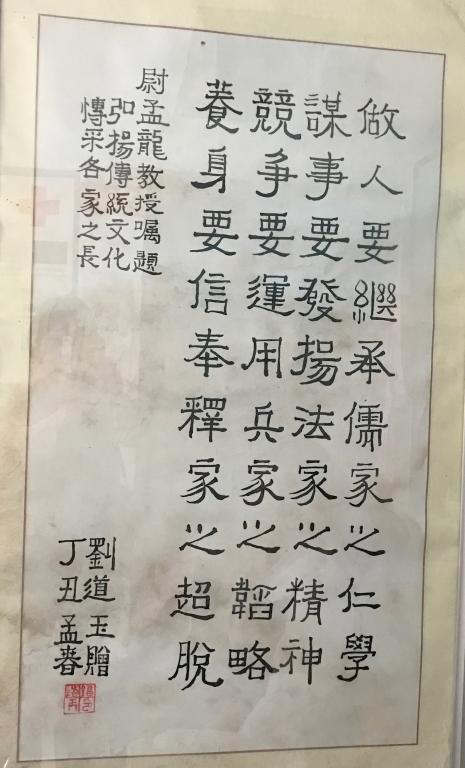 做人要繼承儒家之仁學
謀事要發揚法家之精神
競争要運用兵家之韜略
養身要信奉釋家之超脫
尉孟龍教授囑題
弘揚傳統文化
博采各家之長
劉道玉贈
丁丑孟春